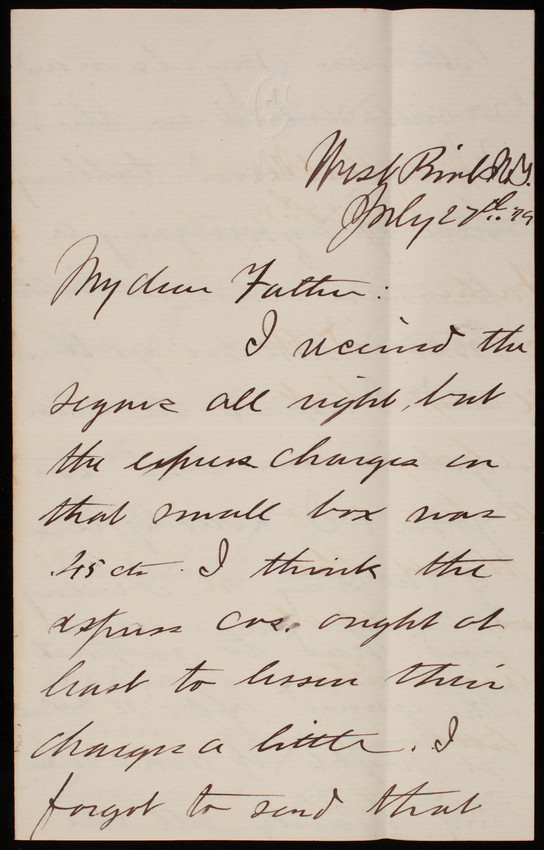 West Point N.Y.
July 27th '79
My dear Father:
I received the
segars all right, but
the express charges on
that small box was
.45 cts. I think the
express cos. ought at
least to lessen their
charges a little. I
forgot to send that